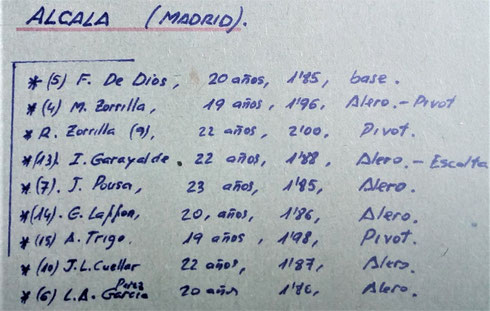 ALCALA (MADRID).
* (5) F. De Dios, 20 años, 1'85, base.
* (4) M. Zorrilla, 19 años, 1'96, Alero.-Pivot
* R. Zorrilla (9), 22 años, 2'00, Pivot.
* (13). I. Garayalde. 22 años, 1'88, Alero.-Escolta
* (7). J. Pousa, 23 años, 1'85, Alero.
* (14). G. Laffon, 20, años, 1'86, Alero.
* (15) A. Trigo. 19 años, 1'98, Pivot.
* (10) J.L. Cuellar 22 años, 1'87, Alero.
* (6) L.A. Perez Garcia 20 años 1'86, Alero.